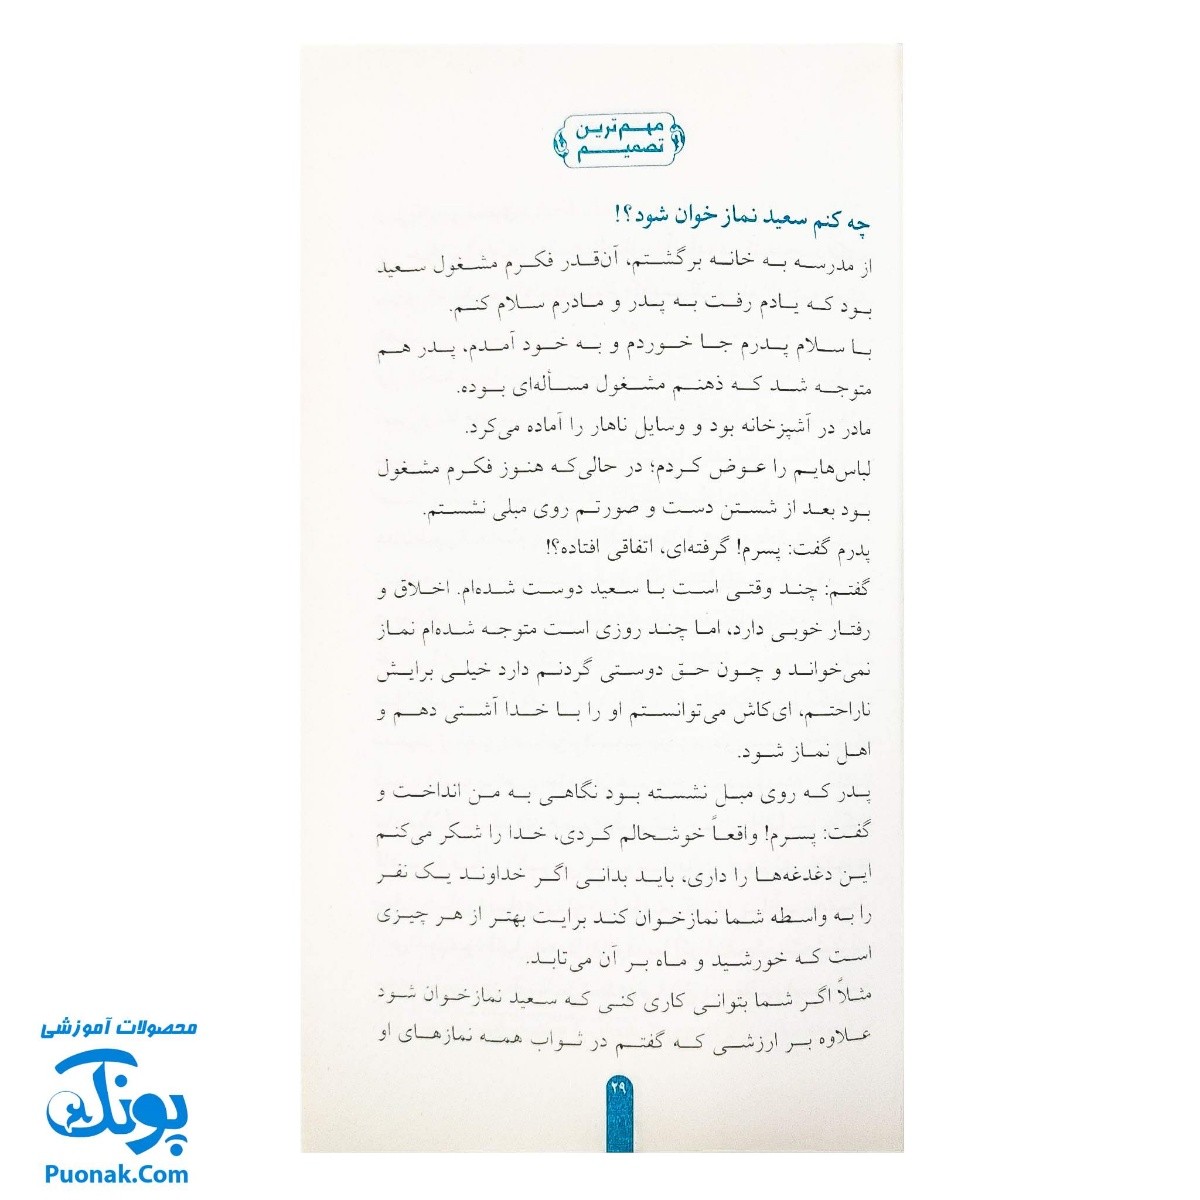 مهم‌ترین
تصمیم
چه کنم سعید نماز خوان شود؟!
از مدرسه به خانه برگشتم، آن‌قدر فکرم مشغول سعید
بود که یادم رفت به پدر و مادرم سلام کنم.
با سلام پدرم جا خوردم و به خود آمدم، پدر هم
متوجه شد که ذهنم مشغول مسأله‌ای بوده.
مادر در آشپزخانه بود و وسایل ناهار را آماده می‌کرد.
لباس‌هایم را عوض کردم؛ در حالی‌که هنوز فکرم مشغول
بود بعد از شستن دست و صورتم روی مبلی نشستم.
پدرم گفت: پسرم! گرفته‌ای، اتفاقی افتاده؟!
گفتم: چند وقتی است با سعید دوست شده‌ام. اخلاق و
رفتار خوبی دارد، اما چند روزی است متوجه شده‌ام نماز
نمی‌خواند و چون حق دوستی گردنم دارد خیلی برایش
ناراحتم، ای‌کاش می‌توانستم او را با خدا آشتی دهم و
اهل نماز شود.
پدر که روی مبل نشسته بود نگاهی به من انداخت و
گفت: پسرم! واقعاً خوشحالم کردی، خدا را شکر می‌کنم
این دغدغه‌ها را داری، باید بدانی اگر خداوند یک نفر
را به واسطه شما نمازخوان کند برایت بهتر از هر چیزی
است که خورشید و ماه بر آن می‌تابد.
مثلاً اگر شما بتوانی کاری کنی که سعید نمازخوان شود
علاوه بر ارزشی که گفتم در ثواب همه نمازهای او
۲۹
محصولات آموزشی
پونک
Puonak.Com